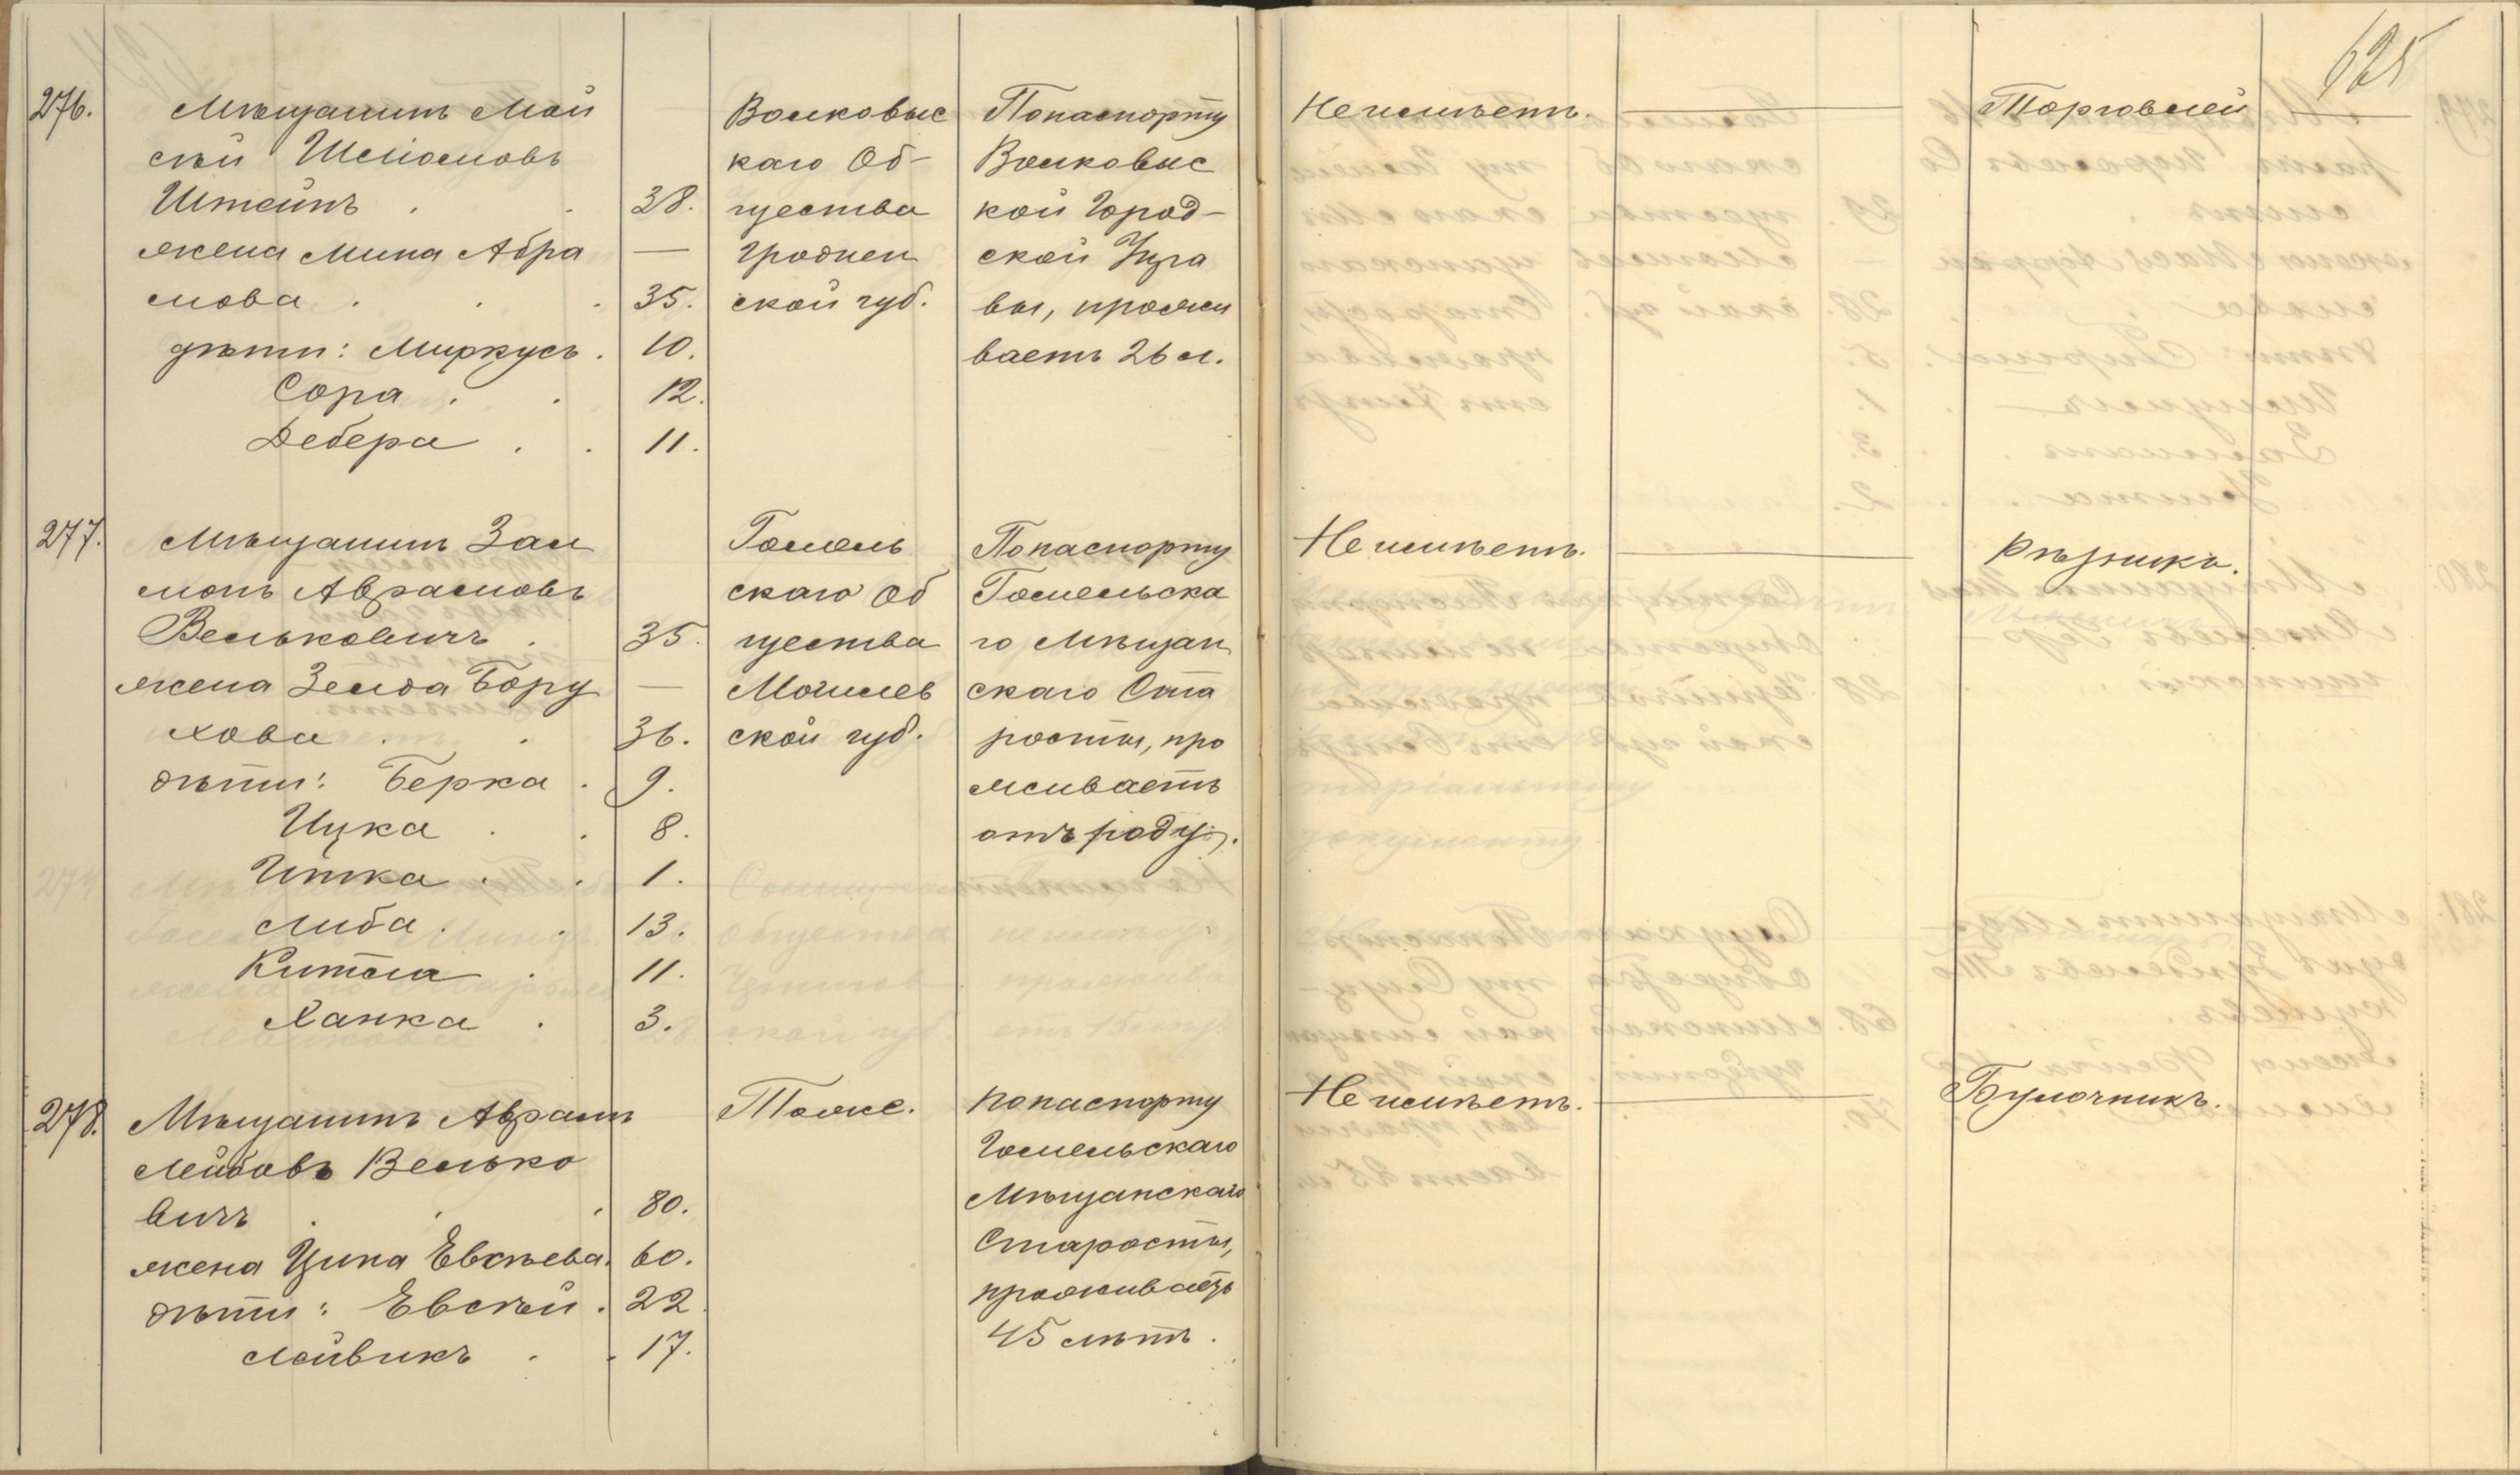 625
276.
Мѣщанинъ Мой
сѣй Шліомовъ
Штейнъ . . 38.
жена Мина Абра —
мова . . . 35.
дѣти: Миркусъ . 10.
Сора . . 12.
Дебера . . 11.
Волковыс
каго Об-
щества
Гроднен
ской губ.
По паспорту
Волковыс
кой Город-
ской Упра
вы, прожи
ваетъ 26 л.
Не имѣетъ. —
Торговлей —
277.
Мѣщанинъ Зал
монъ Аврамовъ
Вельковичъ . 35.
жена Зелда Бору —
хова . . 36.
дѣти: Берка . 9.
Ицка . . 8.
Итка . . 1.
Либа . . 13.
Китля . 11.
Ханка . 3.
Гомель
скаго Об
щества
Могилев
ской губ.
По паспорту
Гомельска
го Мѣщан
скаго Ста
росты, про
живаетъ
отъ роду.
Не имѣетъ. —
Рѣзникъ.
278.
Мѣщанинъ Аврамъ
Лейбовъ Велько
вичъ . . . 80.
жена Ципа Евсѣева. 60.
дѣти: Евсѣй . 22.
Лейвикъ . . 17.
Тоже.
По паспорту
Гомельскаго
Мѣщанскаго
Старосты,
проживаетъ
45 лѣтъ.
Не имѣетъ. —
Булочникъ.